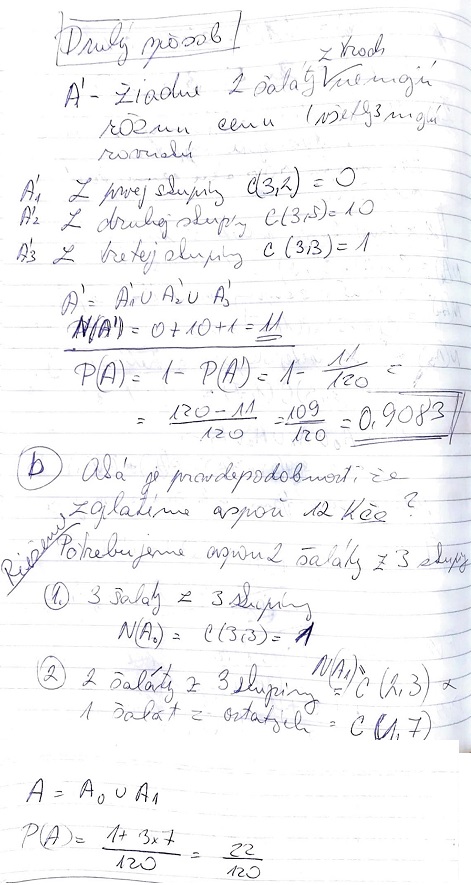 Druhý spôsob
z troch
A' - žiadne 2 šaláty nemajú
rôznu cenu (všetky 3 majú
rovnakú
A'1 Z prvej skupiny C(3,2) = 0
A'2 Z druhej skupiny C(3,5) = 10
A'3 Z tretej skupiny C(3,3) = 1
A' = A'1 ∪ A'2 ∪ A'3
N(A') = 0+10+1 = 11
P(A) = 1 - P(A') = 1 - 11/120 =
= 120-11/120 = 109/120 = 0,9083
b) Aká je pravdepodobnosť že
zaplatíme aspoň 12 Kč ?
Riešenie
Potrebujeme aspoň 2 šaláty z 3 skupiny
1. 3 šaláty z 3 skupiny
N(A0) = C(3,3) = 1
2 2 šaláty z 3 skupiny N(A1) = C(2,3) ×
1 šalát z ostatných = C(1,7)
A = A0 ∪ A1
P(A) = 1+3×7/120 = 22/120